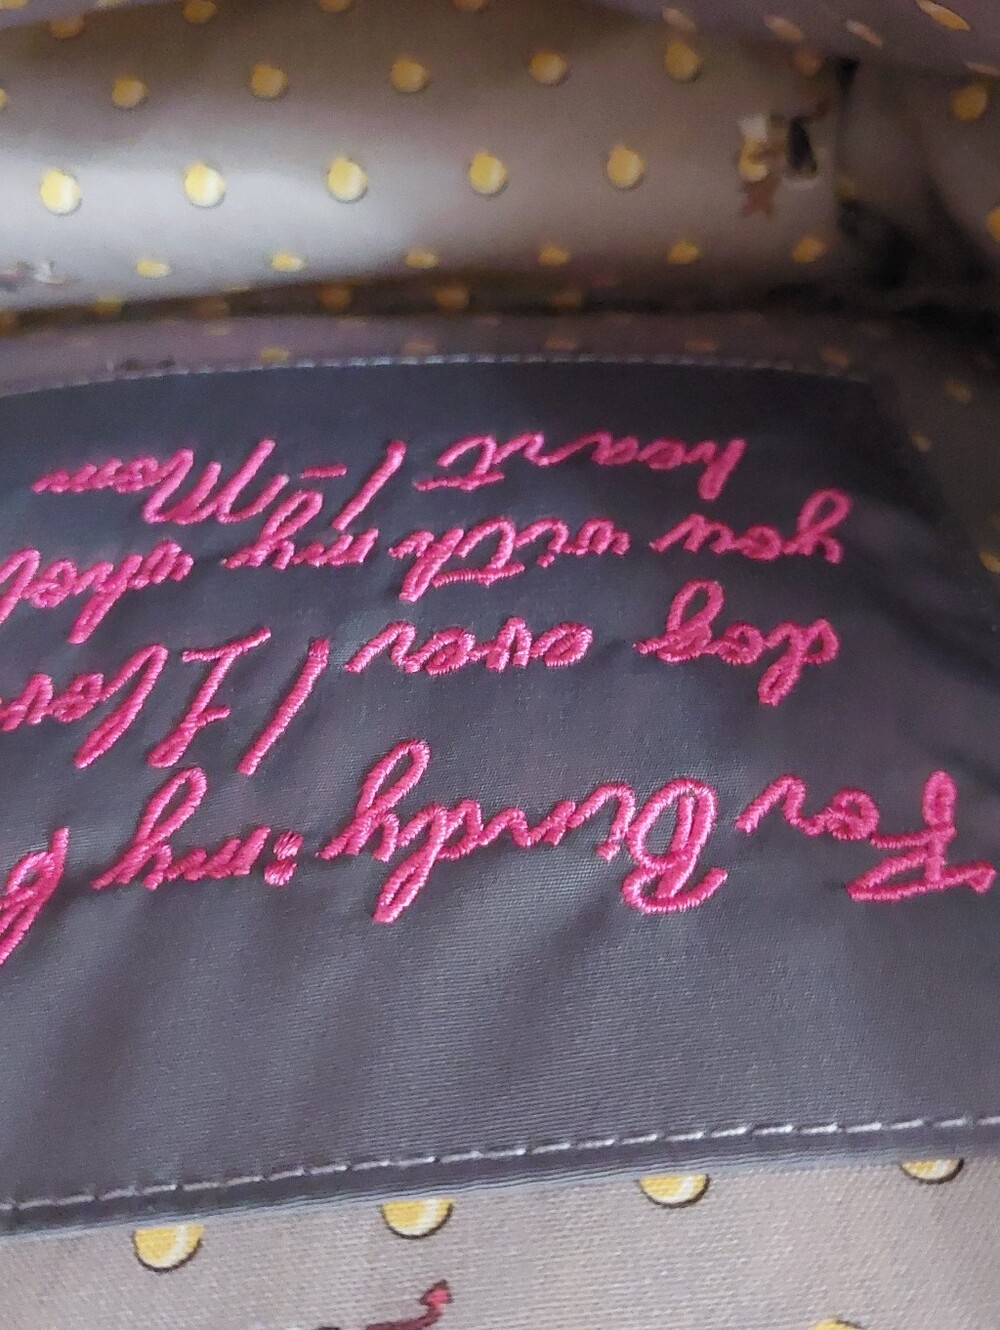 For Dindy: my b
dog ever / I lov
you with my whol
heart / - Mom